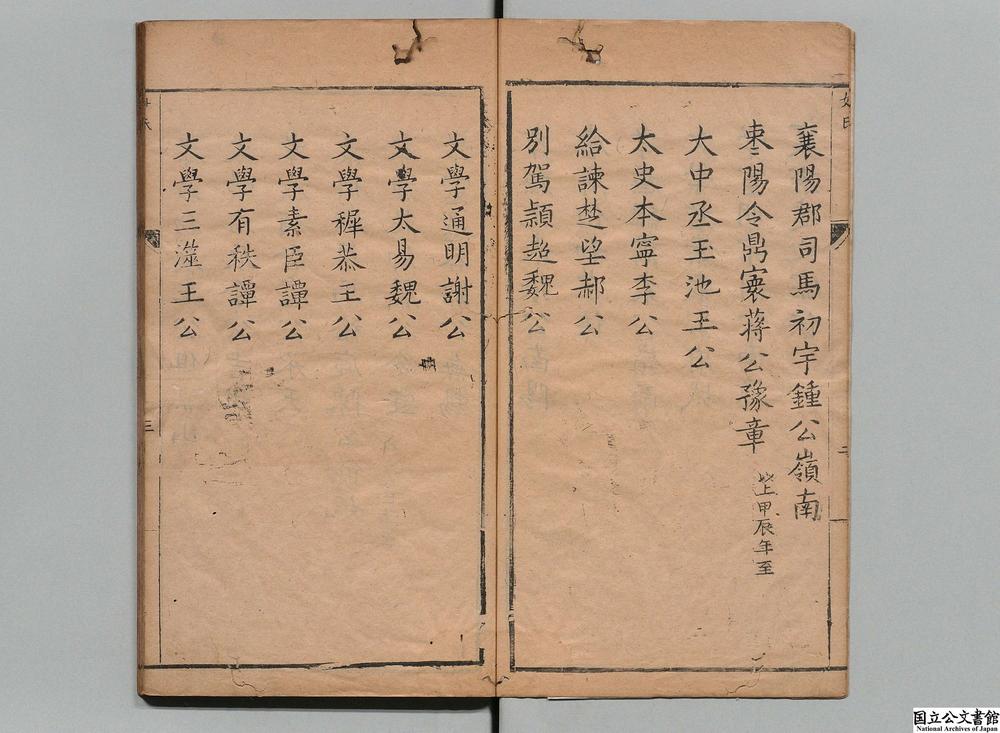 襄陽郡司馬初宇鍾公嶺南
棗陽令鼎寰蔣公豫章 此上甲辰年至
大中丞玉池王公
太史本寧李公
給諫楚望郝公
別駕顥超魏公
二
文學通明謝公
文學太易魏公
文學穉恭王公
文學素臣譚公
文學有秩譚公
文學三澨王公
三
国立公文書館
National Archives of Japan